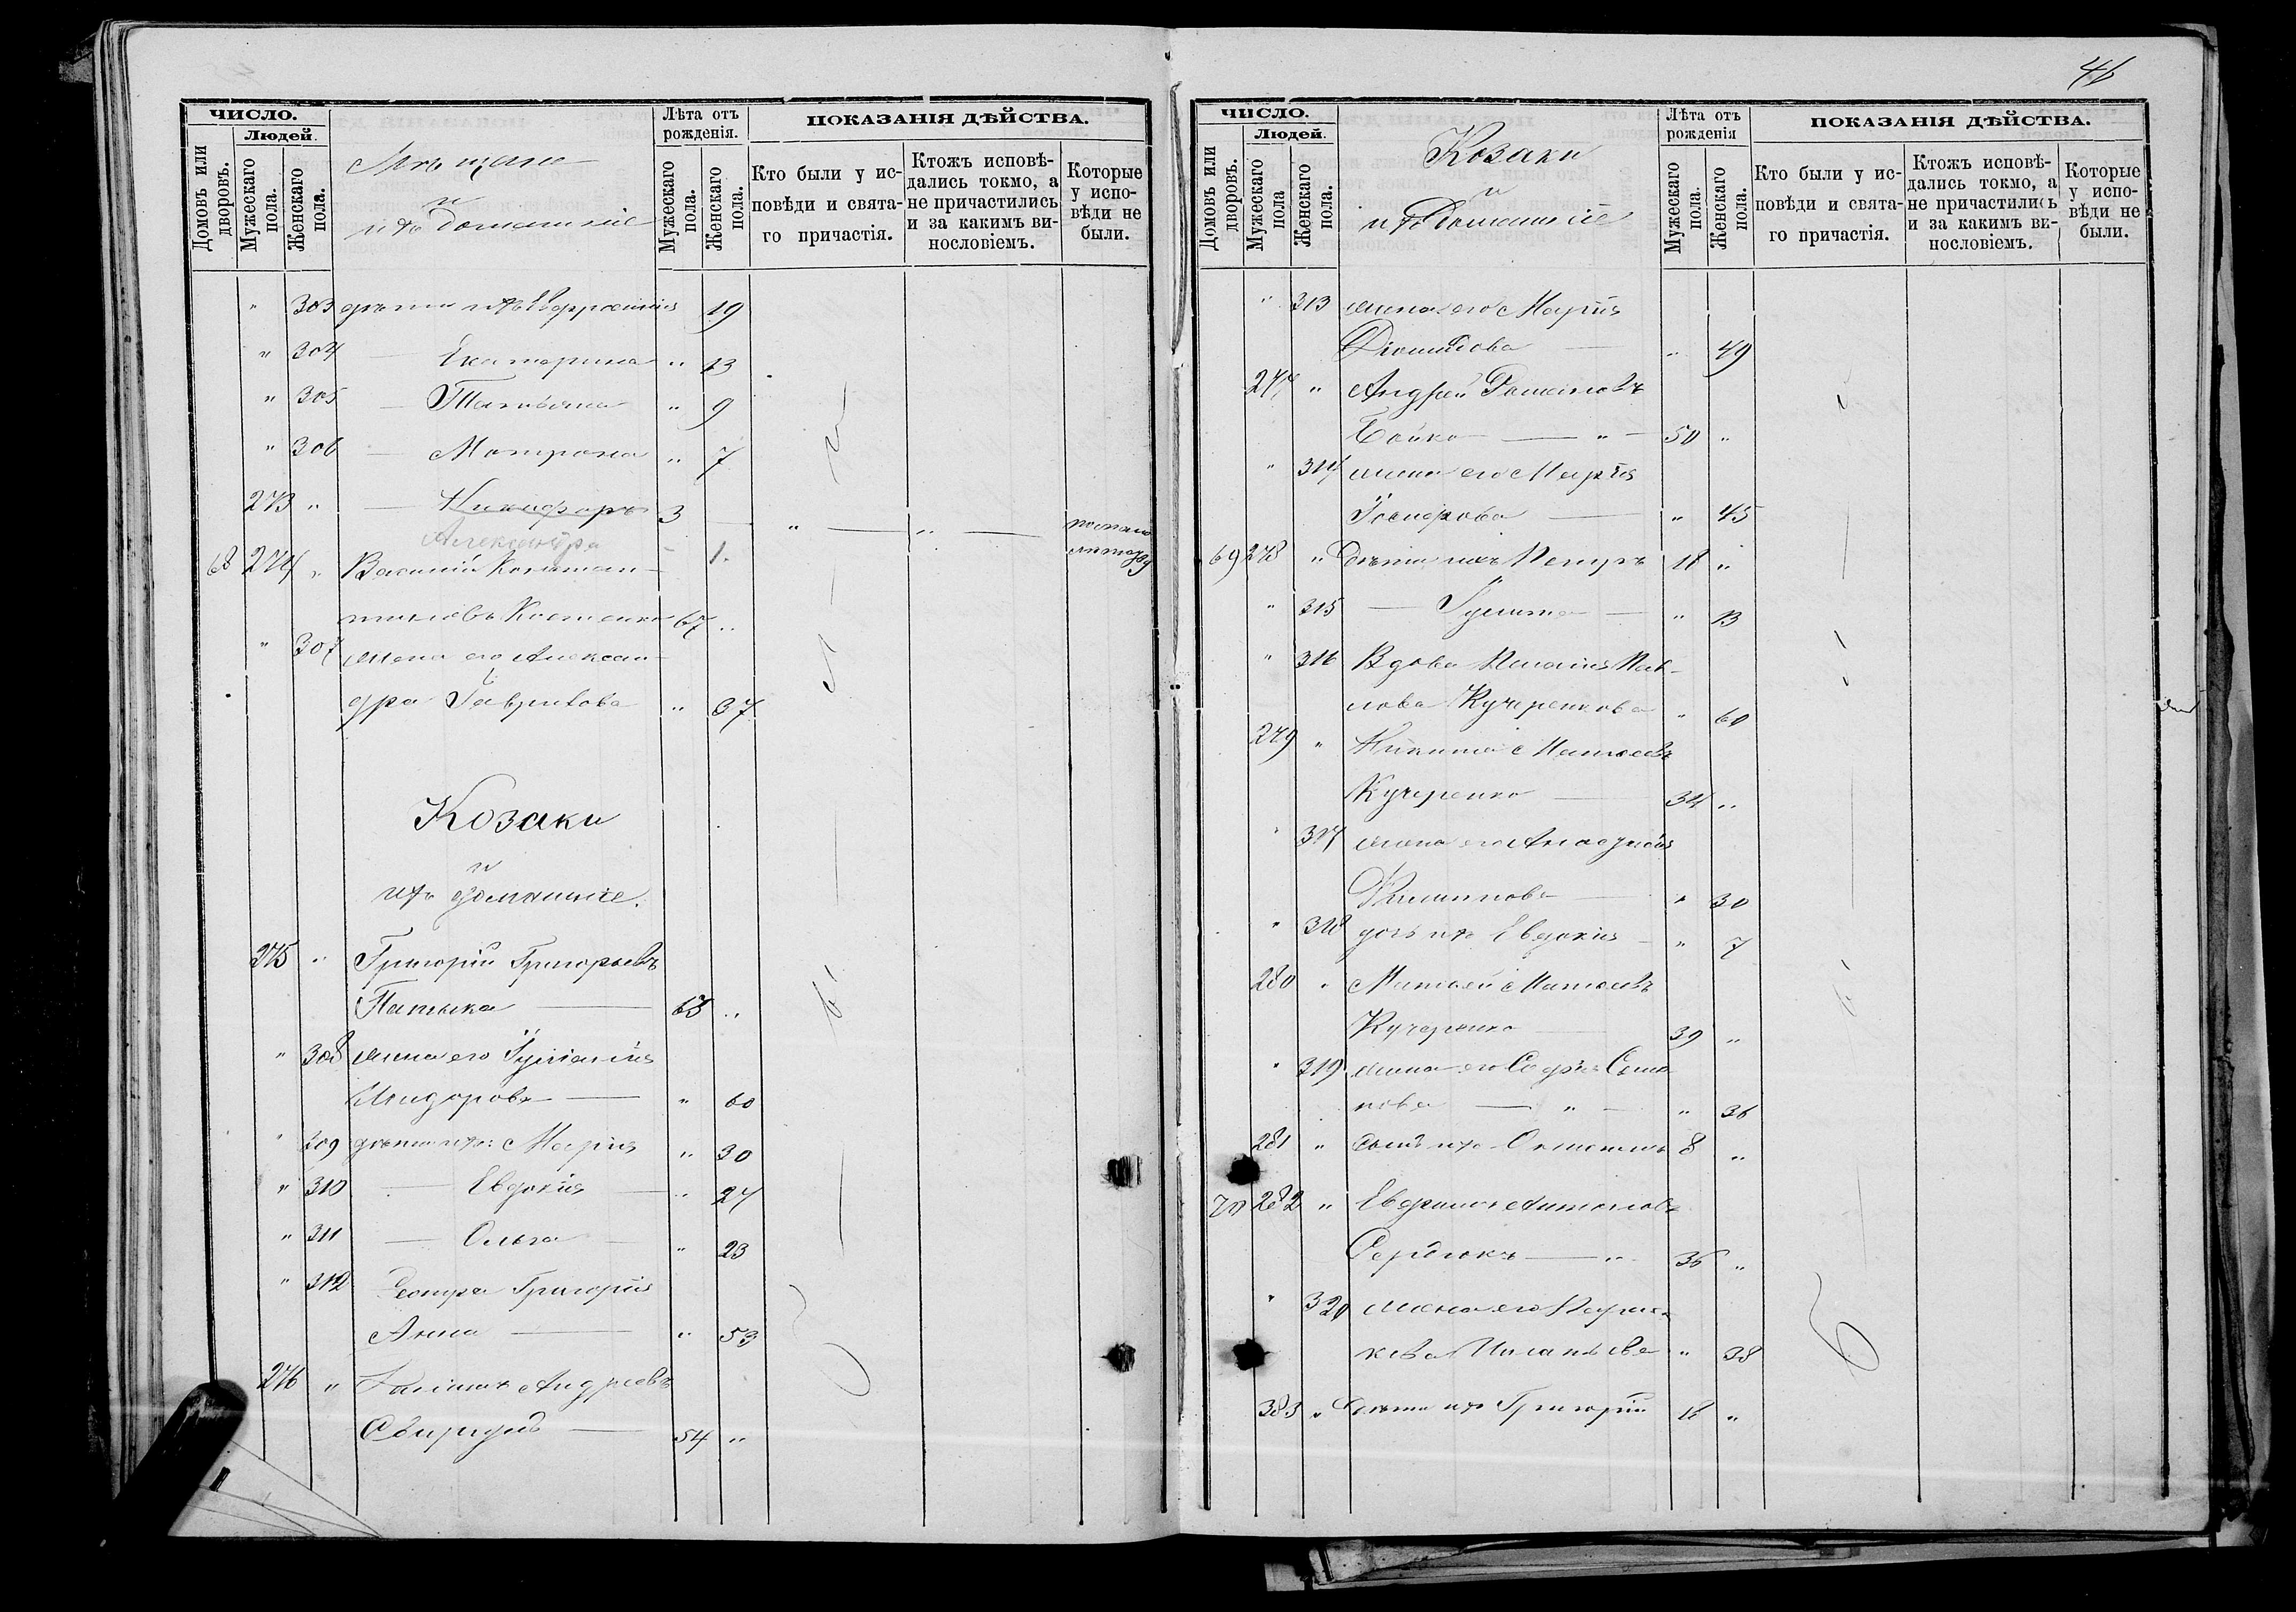 46
ЧИСЛО.
Людей.
Домовъ или дворовъ.
Мужескаго пола.
Женскаго пола.
Мѣщане
и
ихъ домашніе
Лѣта отъ рожденія.
Мужескаго пола.
Женскаго пола.
ПОКАЗАНІЯ ДѢЙСТВА.
Кто были у ис-
повѣди и свята-
го причастія.
Ктожъ исповѣ-
дались токмо, а
не причастились
и за какимъ ви-
нословіемъ.
Которые
у испо-
вѣди не
были.
" 303 дѣти ихъ Евфросинія 19
" 304 — Екатерина " 13
" 305 — Татьяна " 9
" 306 — Матрона " 7
273 " — Никифоръ 3 — " — " —
Александра - 1.
68 274 " Василій Констан-
тиновъ Костенко 67 "
" 307 жена его Алексан-
дра Гаврилова " 37
Козаки
и
ихъ домашніе.
275 " Григорій Григорьевъ
Папыка — 63 "
" 308 жена его Іуліанія
Исидорова — " 60
" 309 дѣти ихъ: Марія " 30
" 310 — Евдокія — " 27
" 311 — Ольга — " 23
" 312 Сестра Григорія
Анна — " 53
276 " Андреевъ
Свиридъ — 54 "
ЧИСЛО.
Людей.
Домовъ или дворовъ.
Мужескаго пола
Женскаго пола.
Козаки
и
ихъ домашніе
Лѣта отъ рожденія
Мужескаго пола.
Женскаго пола.
ПОКАЗАНІЯ ДѢЙСТВА.
Кто были у ис-
повѣди и свята-
го причастія.
Ктожъ исповѣ-
дались токмо, а
не причастились
и за какимъ ви-
нословіемъ.
Которые
у испо-
вѣди не
были.
" 313 жена его Марія
Діомидова — " 49
277 " Андрей Романовъ
Бойко — " — 50 "
" 314 жена его Марія
Іосифова — " 45
69 278 " Дѣти ихъ Петръ 18 "
" 315 — Іулита — " 13
" 316 Вдова Пелагія Пав-
лова Кучеренкова " 60
279 " Никита Матѳеевъ
Кучеренко — 34 "
" 317 жена его Анастасія
Филипова — " 30
" 318 дочь ихъ Евдокія — " 7
280 " Матѳей Матѳеевъ
Кучеренко — 39 "
" 319 жена его Софія Семе
нова — " — " 36
281 " сынъ ихъ 8 "
70 282 " Ефремъ Антоновъ
Сердюкъ — " 36 "
" 320 жена его Параске
кева " 38
383 " Дѣти ихъ Григорій 18 "